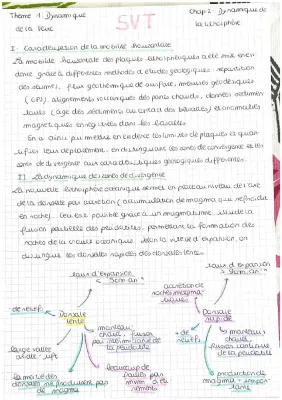 Thème 1 : Dynamique
de la Terre
SVT
Chap 2 : Dynamique de
la lithosphère
I - Caractérisation de la mobilité horizontale
La mobilité horizontale des plaques lithosphériques a été mise en évi-
dence grâce à différentes méthodes d'études géologiques : répartition
des séismes, flux géothermique de surface, mesures géodésiques
(GPS), alignements volcaniques des points chauds, données sédimen-
taires (âge des sédiments au contact des basaltes) et anomalies
magnétiques enregistrées dans les basaltes.
On a ainsi pu mettre en évidence les limites de plaques et quan-
tifier leur déplacement, en distinguant les zones de convergence et les
zones de divergence aux caractéristiques géologiques différentes.
II - La dynamique des zones de divergence
La nouvelle lithosphère océanique se met en place au niveau de l'axe
de la dorsale par accrétion (accumulation de magma qui refroidit
en roche). Ceci est possible grâce à un magmatisme issu de la
fusion partielle des péridotites, permettant la formation des
roches de la croûte océanique. Selon la vitesse d'expansion, on
distingue les dorsales rapides des dorsales lentes.
taux d'expansion
< 5cm.an⁻¹
taux d'expansion
> 5cm.an⁻¹
accrétion de
roches magma-
tiques
- de reliefs
Dorsale
lente
Dorsale
rapide
manteau
chaud, fusion
de la péridotite
+ de
reliefs
manteau
chaud,
fusion continue
de la péridotite
large vallée
axiale : rift
la moitié des
dorsales ne produisent pas
de magma
beaucoup de
failles par
production de
magma + impor-
tante